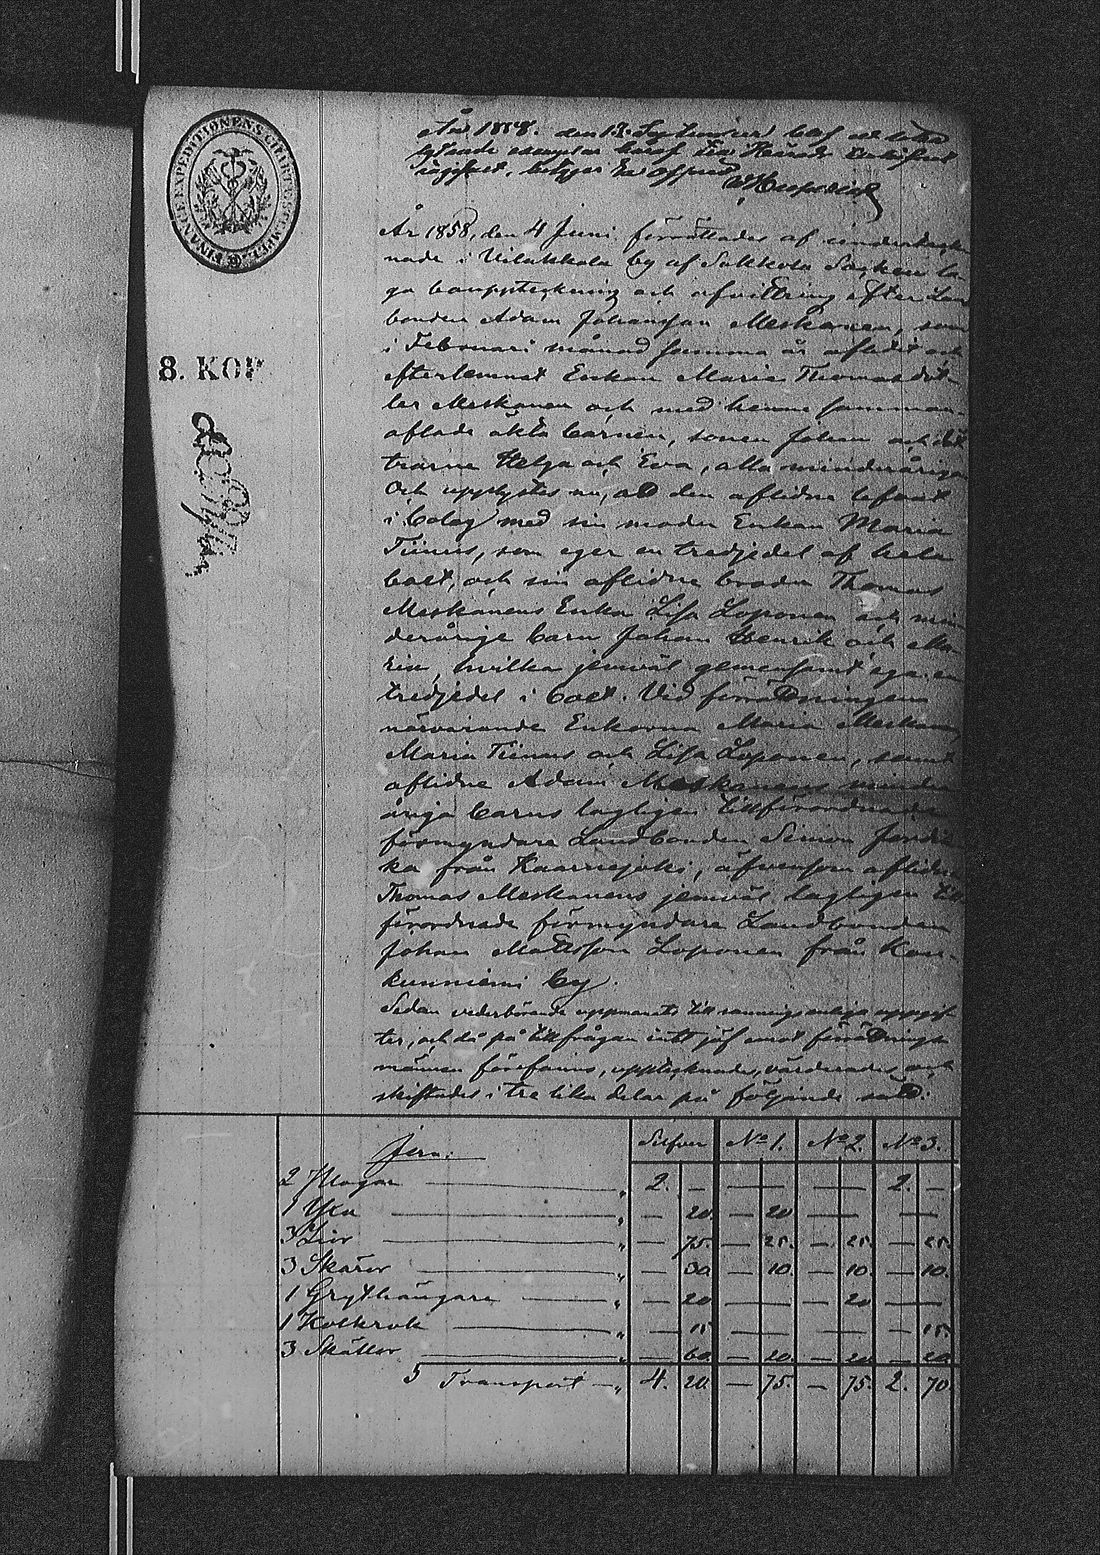 FINANCE EXPEDITIONENS CHARTÆ STEMPEL
År 1858. den 13 September blef ett lika
lydande exemplar häraf Härads
ingifvet, betygar Ex officio
8. KOP
År 1858, den 4 Juni förrättades af underteck
nade i Vilakkala by af Sakkola Socken la
ga bouppteckning och afvittring efter Lan
bonden Adam Johansson Meskanen, som
i Februari månad samma år aflidit och
efterlemnat Enkan Maria Thomasdot-
ter Meskanen och med henne samman-
aflade äkta barnen, sonen Johan och döt
trarne Helga och Eva, alla minderåriga
Och upplystes nu, att den aflidne lefvat
i bolag med sin moder Enkan Maria
Tiinus, som eger en tredjedel af hela
boet, och sin aflidne broder Thomas
Meskanens Enka Lisa Loponen och min
derårige barn Johan Henrik och Ma
ria, hvilka jemväl gemensamt ega en
tredjedel i boet. Vid förrättningen
närvarande Enkorna Maria Meskanen,
Maria Tiinus och Lisa Loponen, samt
aflidne Adam Meskanens minder
åriga barns lagligen tillförordnade
förmyndare Landbonden Simon
ka från Kaarnajoki, äfvensom aflidne
Thomas Meskanens jemväl lagligen till
förordnade förmyndare Landbonden
Johan Mattsson Loponen från Kon-
kunniemi by.
Sedan vederbörande uppmanats till sanningsenliga uppgif
ter, och då på tillfrågan intet jäf emot förrättnings
männen förefanns, upptecknades, värderades och
skiftades i tre lika delar på följande sätt:
Jern: Silfver No 1. No 2. No 3.
2 Plogar " 2. — — — 2. —
1 Yxa " — 20. — 20 — —
3 Liar " — 75. — 25. — 25. — 25.
3 Skäror " — 30. — 10. — 10. — 10.
1 Grythängare " — 20 — — 20 —
1 Kolkrok " — 15 — — — 15.
3 Skällor " — 60. — 20. — 20 — 20.
S Transport — " 4. 20. — 75. — 75. 2. 70.